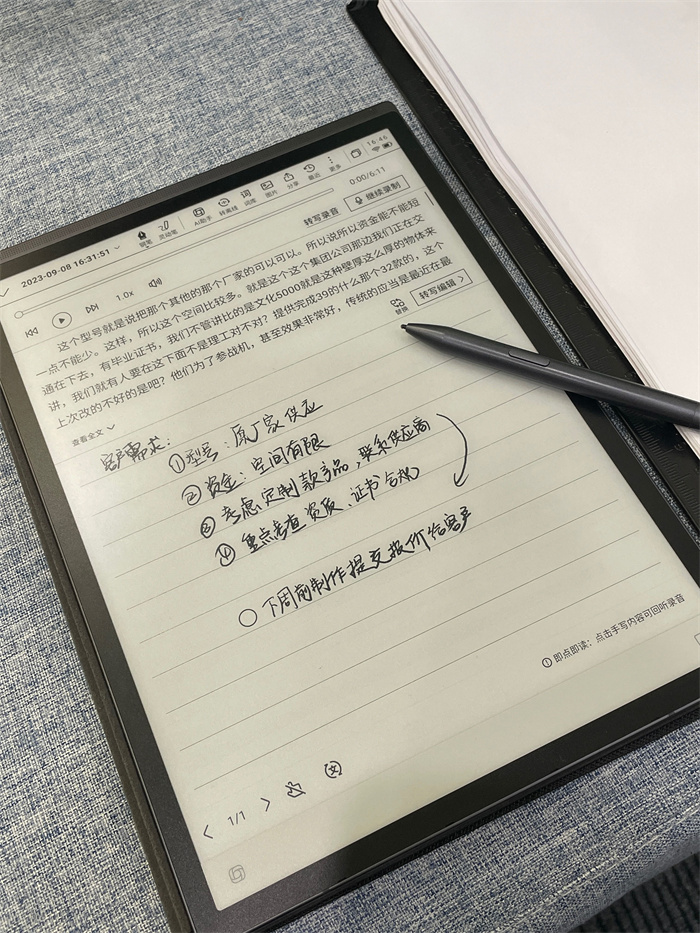 16:46
2023-09-08 16:31:51
钢笔
灵动笔
AI助手
转离线
词库
图片
分享
最近
更多
1.0x
转写录音
0:00/6:11
继续录制
这个型号就是说把那个其他的那个厂家的可以可以。所以说所以资金能不能短
一点不能少。这样，所以这个空间比较多。就是这个这个集团公司那边我们正在交
通在下去，有毕业证书，我们不管讲比的是文化5000就是这种壁厚这么厚的物体来
讲，我们就有人要在这下面不是理工对不对？提供完成39的什么那个32款的，这个
上次改的不好的是吧？他们为了参战机，甚至效果非常好，传统的应当是最近在最
替换
转写编辑 >
查看全文
客户需求：
①型号：原厂家供应
②资金：空间有限
③考虑定制款产品，联系供应商
④重点考查资质、证书合规
○下周前制作提交报价给客户
① 即点即读：点击手写内容可回听录音
< 1/1 >